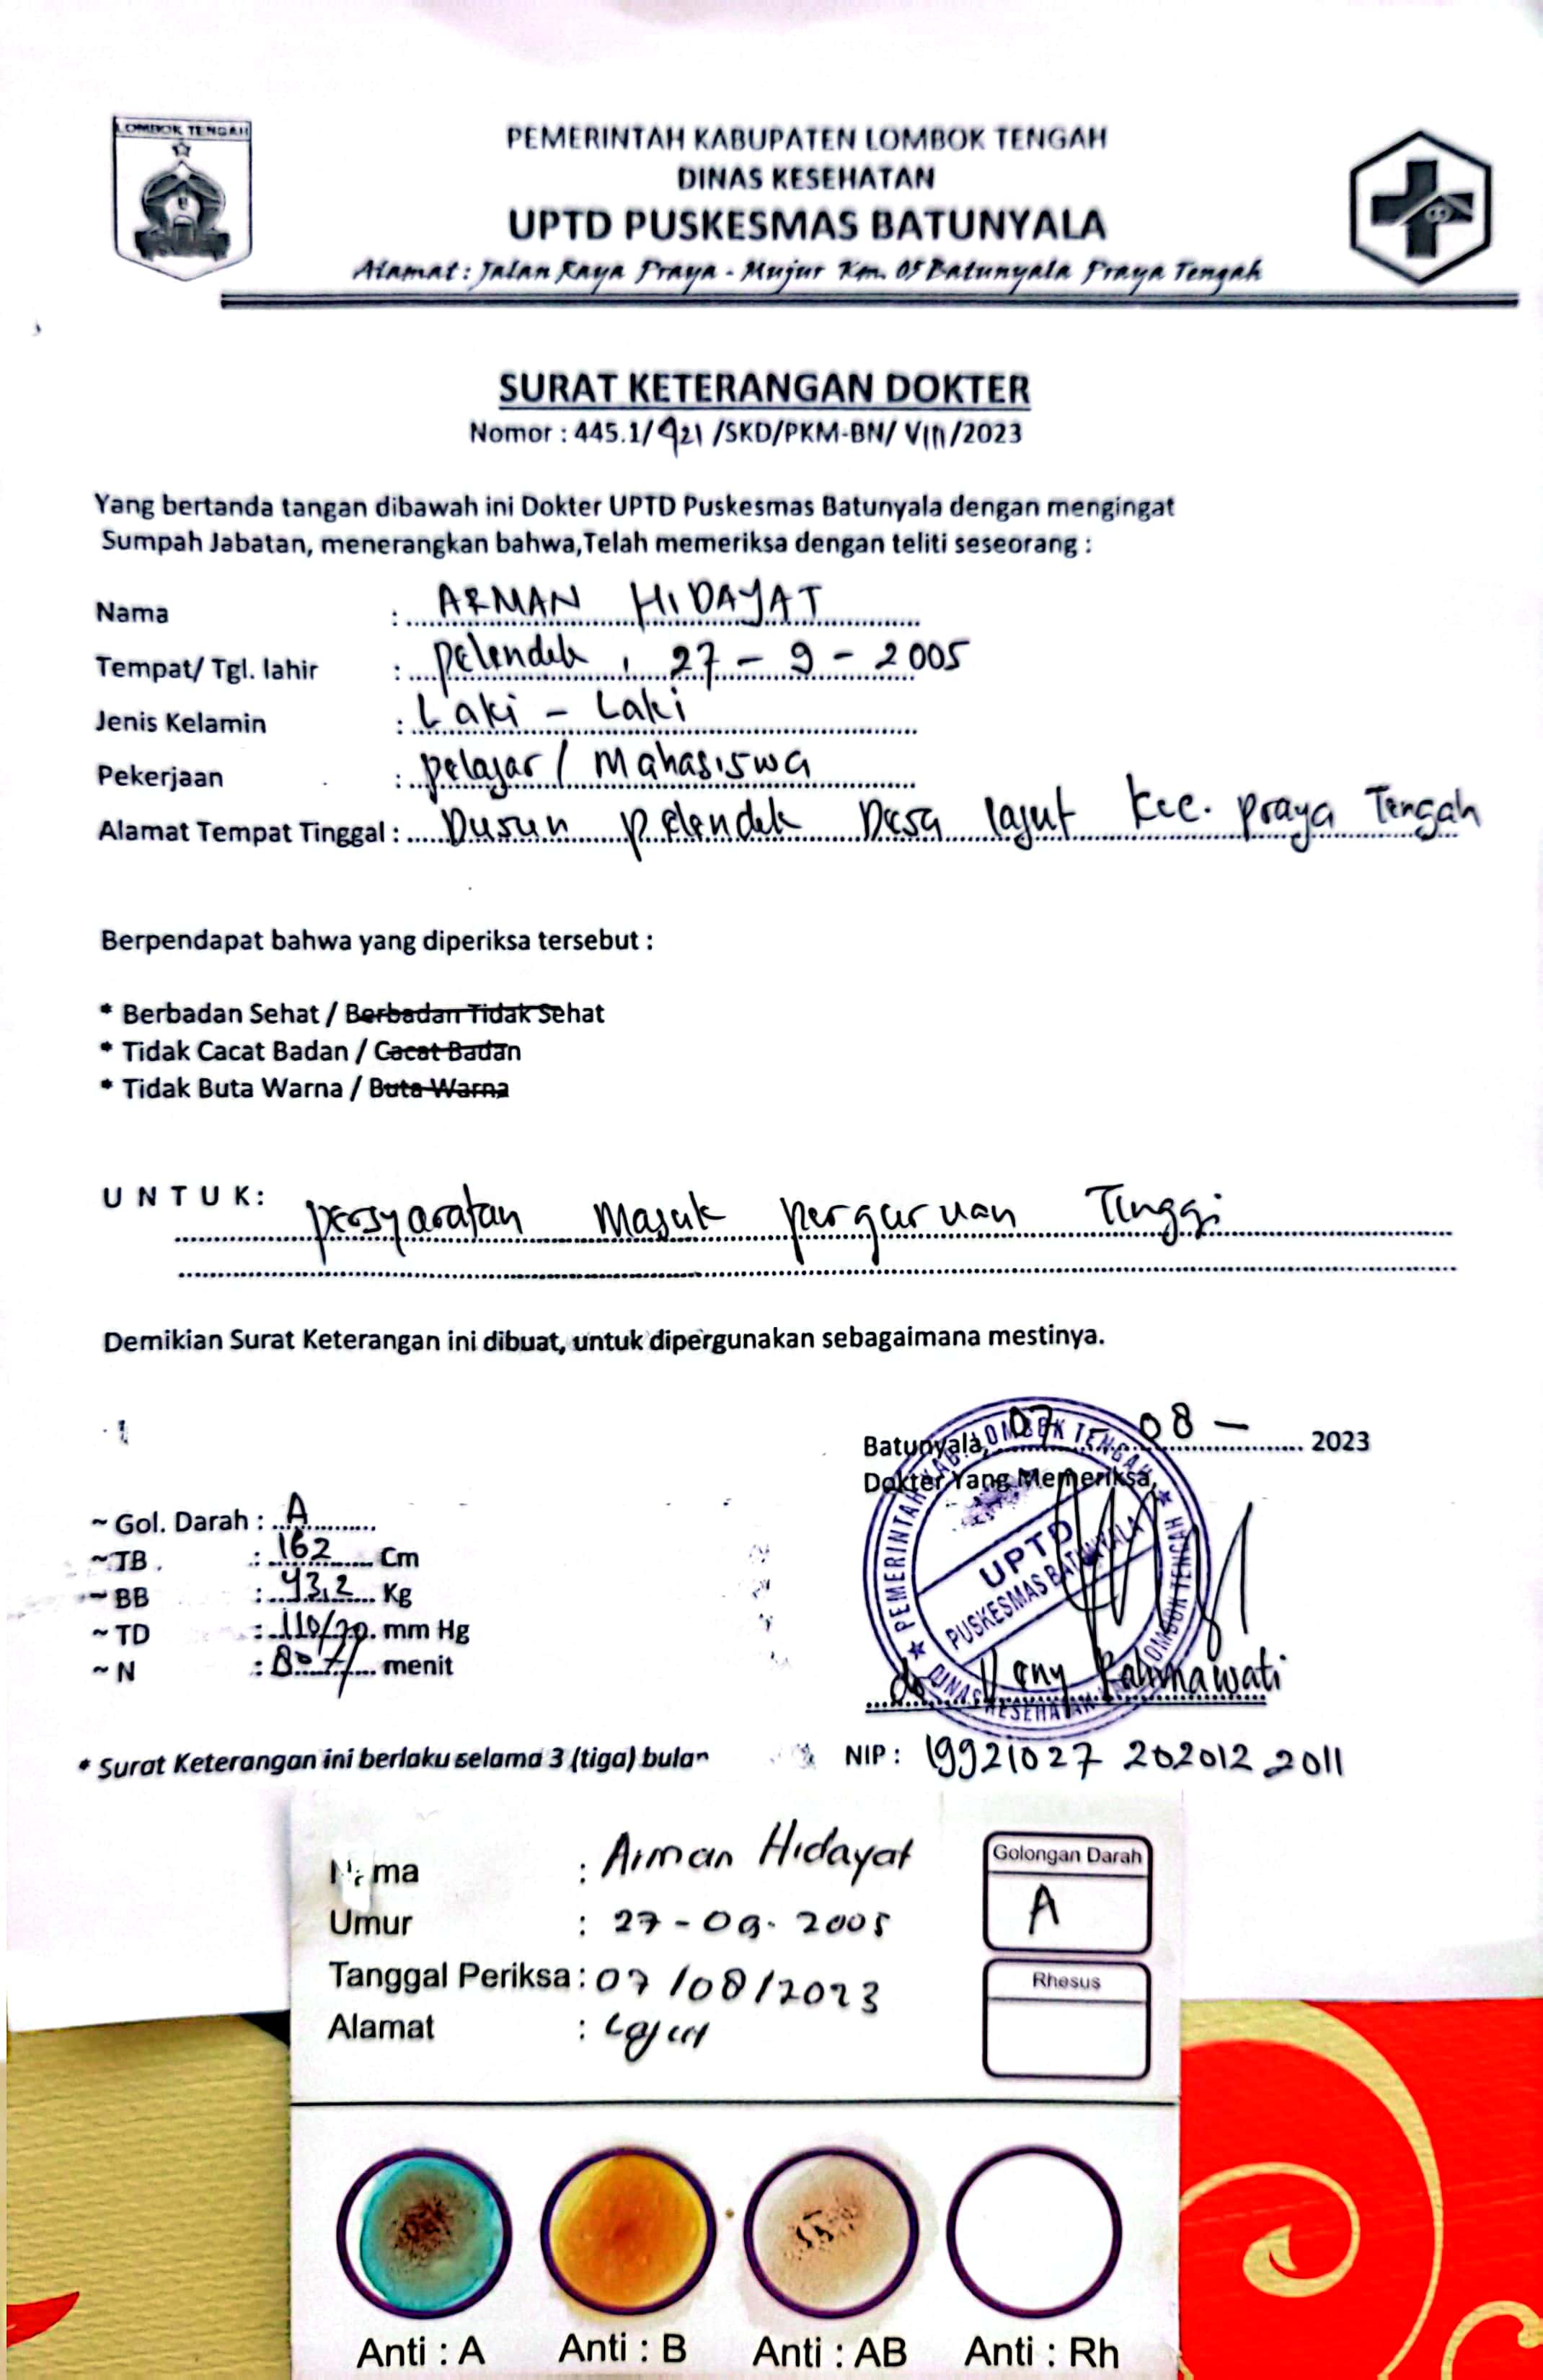 LOMBOK TENGAH
PEMERINTAH KABUPATEN LOMBOK TENGAH
DINAS KESEHATAN
UPTD PUSKESMAS BATUNYALA
Alamat : Jalan Raya Praya - Mujur Km. 05 Batunyala Praya Tengah
SURAT KETERANGAN DOKTER
Nomor : 445.1/921 /SKD/PKM-BN/ VIII/2023
Yang bertanda tangan dibawah ini Dokter UPTD Puskesmas Batunyala dengan mengingat
Sumpah Jabatan, menerangkan bahwa,Telah memeriksa dengan teliti seseorang :
Nama : ARMAN HIDAYAT
Tempat/ Tgl. lahir : pelendek , 27 - 9 - 2005
Jenis Kelamin : Laki - Laki
Pekerjaan : pelajar / Mahasiswa
Alamat Tempat Tinggal : Dusun pelendek Desa lajut Kec. praya Tengah
Berpendapat bahwa yang diperiksa tersebut :
* Berbadan Sehat / Berbadan Tidak Sehat
* Tidak Cacat Badan / Cacat Badan
* Tidak Buta Warna / Buta Warna
U N T U K : persyaratan Masuk perguruan Tinggi
Demikian Surat Keterangan ini dibuat, untuk dipergunakan sebagaimana mestinya.
Batunyala, 07 - 08 - 2023
Dokter Yang Memeriksa,
PEMERINTAH KAB. LOMBOK TENGAH
UPTD
PUSKESMAS BATUNYALA
DINAS KESEHATAN LOMBOK TENGAH
~ Gol. Darah : A
~ TB . : 162 Cm
~ BB : 43,2 Kg
~ TD : 110/70. mm Hg
~ N : 80 x/ menit
dr Rahmawati
* Surat Keterangan ini berlaku selama 3 (tiga) bulan
NIP : 19921027 202012 2011
Nama : Arman Hidayat
Umur : 27 - 09 - 2005
Tanggal Periksa : 07 /08 /2023
Alamat : Lajut
Golongan Darah
A
Rhesus
Anti : A Anti : B Anti : AB Anti : Rh